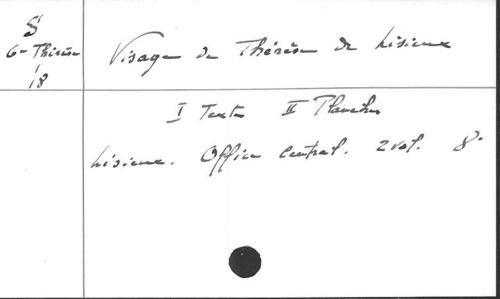 S
6- Thérèse
18
Visage de Thérèse de Lisieux
I Texte II Planches
Lisieux. Office Central. 2 vol. 8°